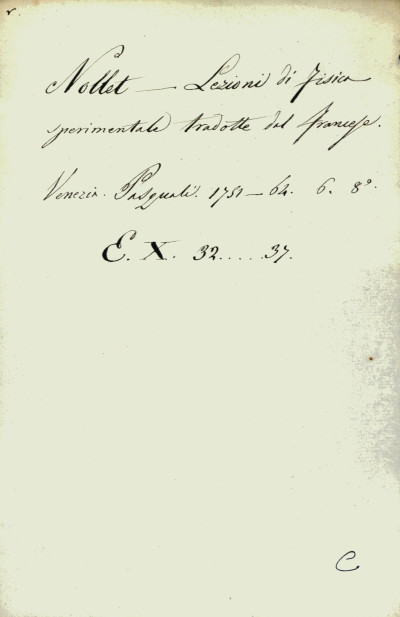 r.
Nollet — Lezioni di Fisica
sperimentale tradotte dal francese.
Venezia. Pasquali. 1751–64. 6. 8º.
E. X. 32.....37.
C